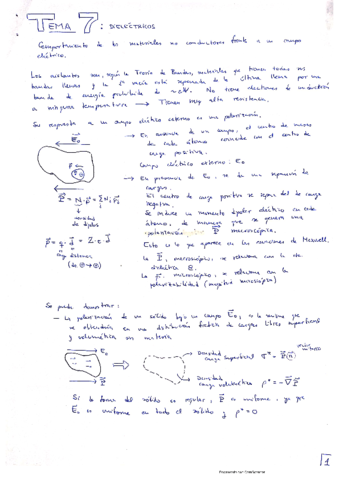 TEMA 7: DIELÉCTRICOS
Comportamiento de los materiales no conductores frente a un campo
eléctrico.
Los aislantes son, según la Teoría de Bandas, materiales que tienen todas sus
bandas llenas y la 1ª vacía está separada de la última llena por una
banda de energía prohibida de No tiene electrones de conducción
a ninguna temperatura → Tienen muy alta resistencia.
Su respuesta a un campo eléctrico externo es una polarización.
E₀
→ En ausencia de un campo, el centro de masas
de cada átomo coincide con el centro de
carga positiva.
Campo eléctrico externo: E₀
→ En presencia de E₀, se da una separación de
cargas.
El centro de carga positivo se separa del de carga
negativa.
Se induce un momento dipolar eléctrico en cada
átomo, de manera que se genera una
polarización macroscópica.
Esto es lo que aparece en las ecuaciones de Maxwell.
La P, macroscópica, se relaciona con la cte
dieléctrica ε.
La p, microscópica, se relaciona con la
polarizabilidad (magnitud microscópica)
Se puede demostrar:
- La polarización de un sólido bajo un campo E₀, es la misma que
se obtendría en una distribución ficticia de cargas libres superficiales
y volumétrica en su interior
E₀
P
Densidad
carga superficial
Densidad
carga volumétrica ρ* = -∇P
Si la forma del sólido es regular, P es uniforme, ya que
E₀ es uniforme en todo el sólido y ρ* = 0
1